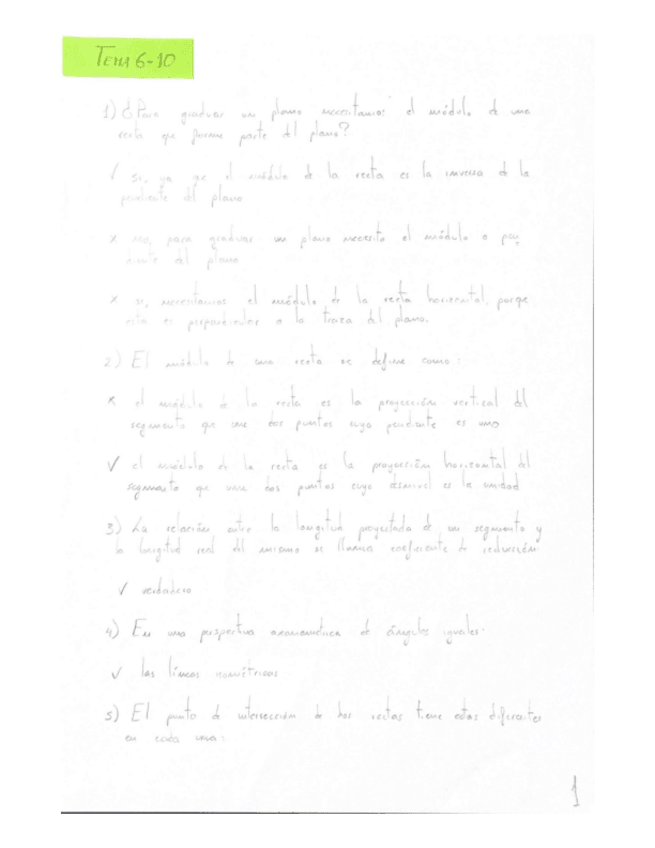 TEMA 6-10
1) ¿Para graduar un plano necesitamos el módulo de una
recta que forme parte del plano?
✓ si, ya que el módulo de la recta es la inversa de la
pendiente del plano
x no, para graduar un plano necesito el módulo o pen
diente del plano
x si, necesitamos el módulo de la recta horizontal, porque
esta es perpendicular a la traza del plano.
2) El módulo de una recta se define como:
x el módulo de la recta es la proyección vertical del
segmento que une dos puntos cuya pendiente es uno
✓ el módulo de la recta es la proyección horizontal del
segmento que une dos puntos cuyo desnivel es la unidad
3) La relación entre la longitud proyectada de un segmento y
la longitud real del mismo se llama coeficiente de reducción:
✓ verdadero
4) En una perspectiva axonometrica de ángulos iguales:
✓ las líneas isométricas
5) El punto de intersección de dos rectas tiene cotas diferentes
en cada una:
1